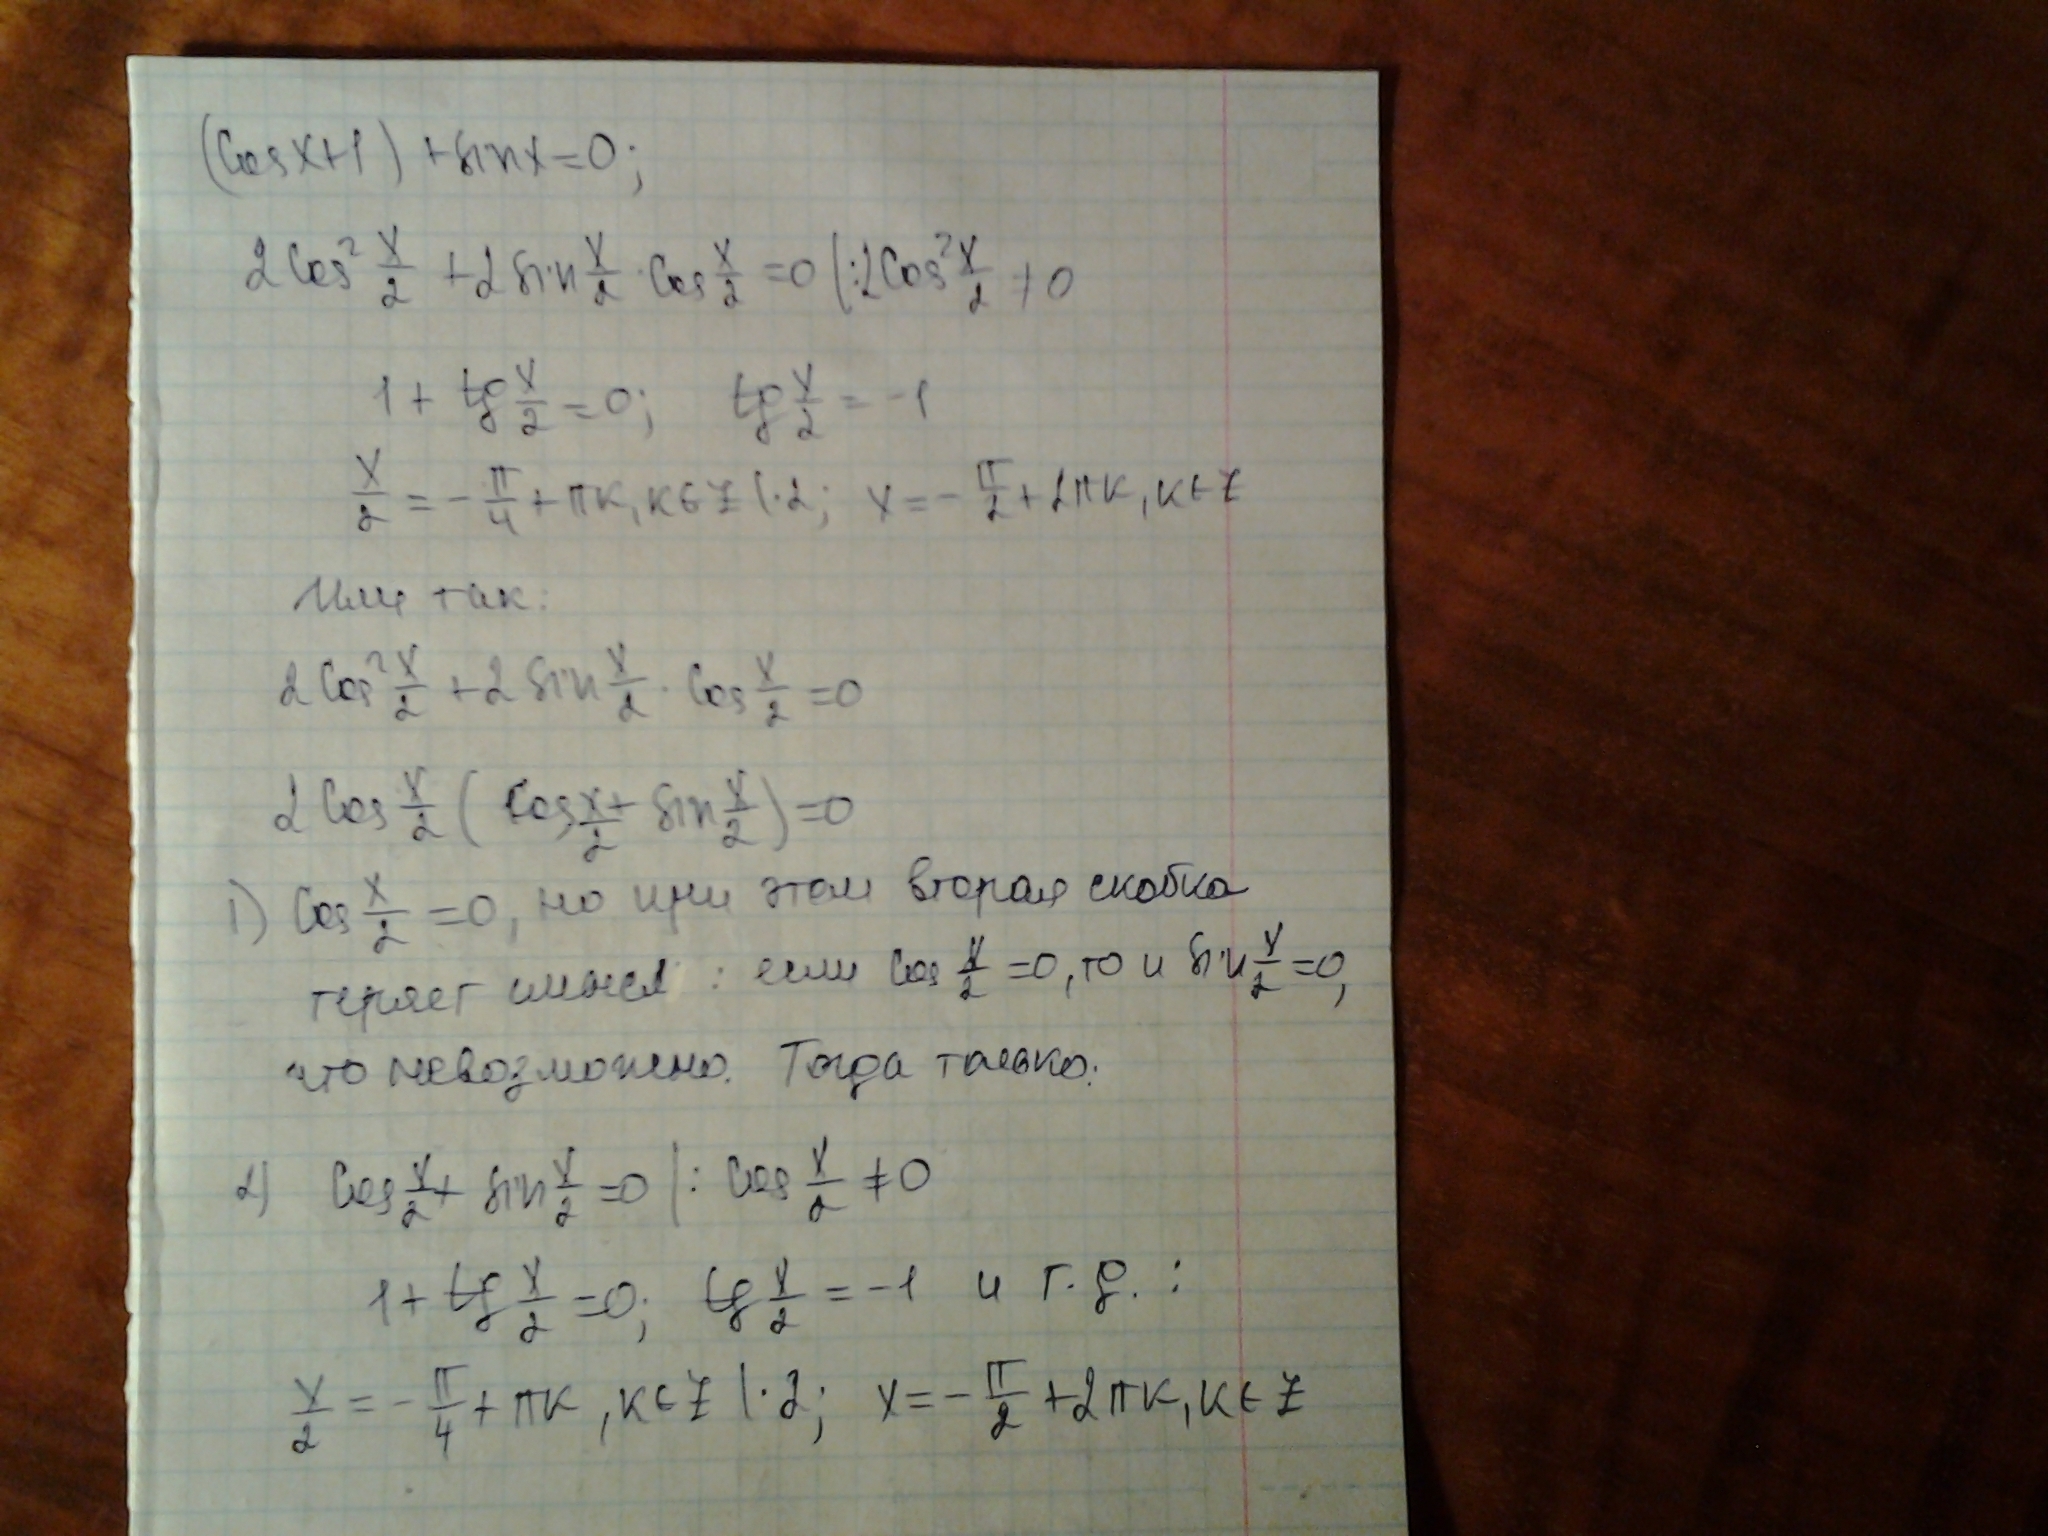 (Cosx+1) + sinx = 0;
2Cos² x/2 + 2sin x/2 · Cos x/2 = 0 |:2Cos² x/2 ≠ 0
1 + tg x/2 = 0; tg x/2 = -1
x/2 = -π/4 + πk, k∈Z |·2; x = -π/2 + 2πk, k∈Z
Или так:
2Cos² x/2 + 2sin x/2 · Cos x/2 = 0
2Cos x/2 ( Cos x/2 + sin x/2 ) = 0
1) Cos x/2 = 0, но при этом вторая скобка
теряет смысл : если Cos x/2 = 0, то и sin x/2 = 0,
что невозможно. Тогда только:
2) Cos x/2 + sin x/2 = 0 |: Cos x/2 ≠ 0
1 + tg x/2 = 0; tg x/2 = -1 и т.д. :
x/2 = -π/4 + πk, k∈Z |·2; x = -π/2 + 2πk, k∈Z